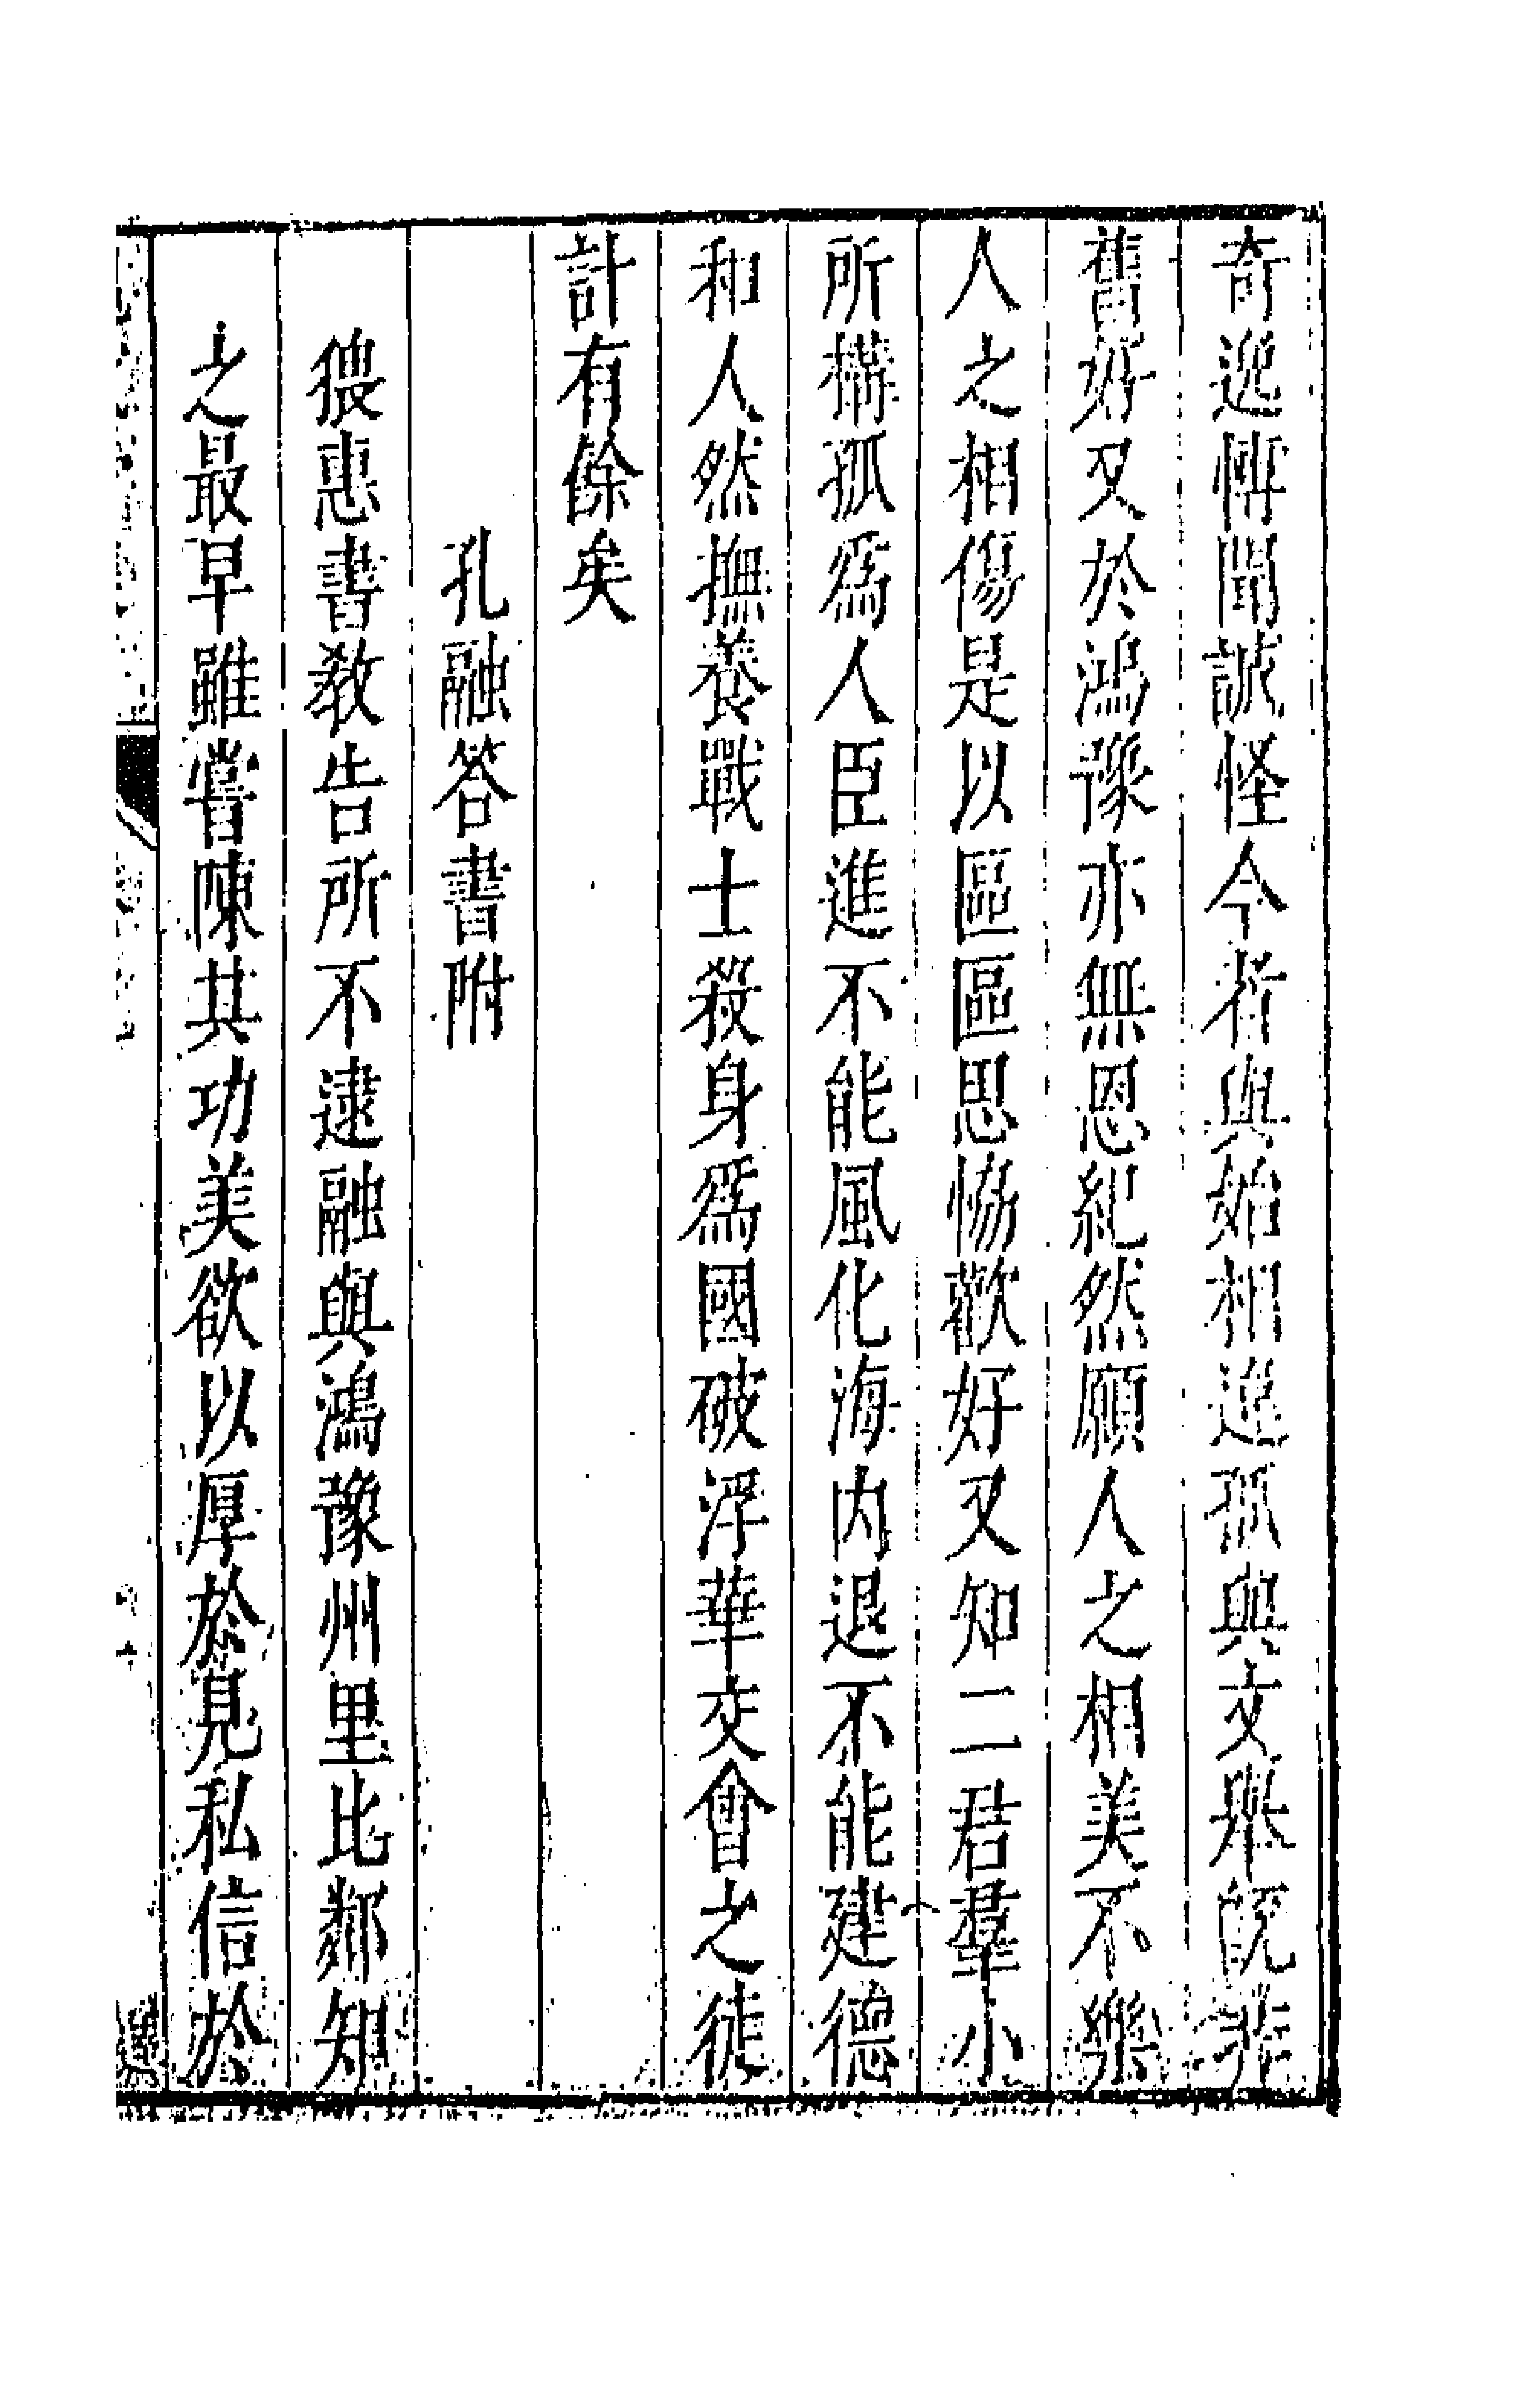 奇逸博聞誠怪今者與始相違孤與文舉旣非
舊好又於鴻豫亦無恩紀然願人之相美不樂
人之相傷是以區區思恊歡好又知二君羣小
所搆孤爲人臣進不能風化海内退不能建德
和人然撫養戰士殺身爲國破浮華交會之徒
計有餘矣
孔融答書附
猥惠書敎告所不逮融與鴻豫州里比鄰知
之最早雖嘗陳其功美欲以厚於見私信於